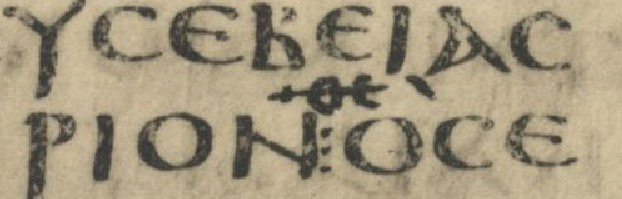 ΥϹΕΒΕΙΑϹ
ΘΕ
ΡΙΟΝ⁝ΟϹΕ